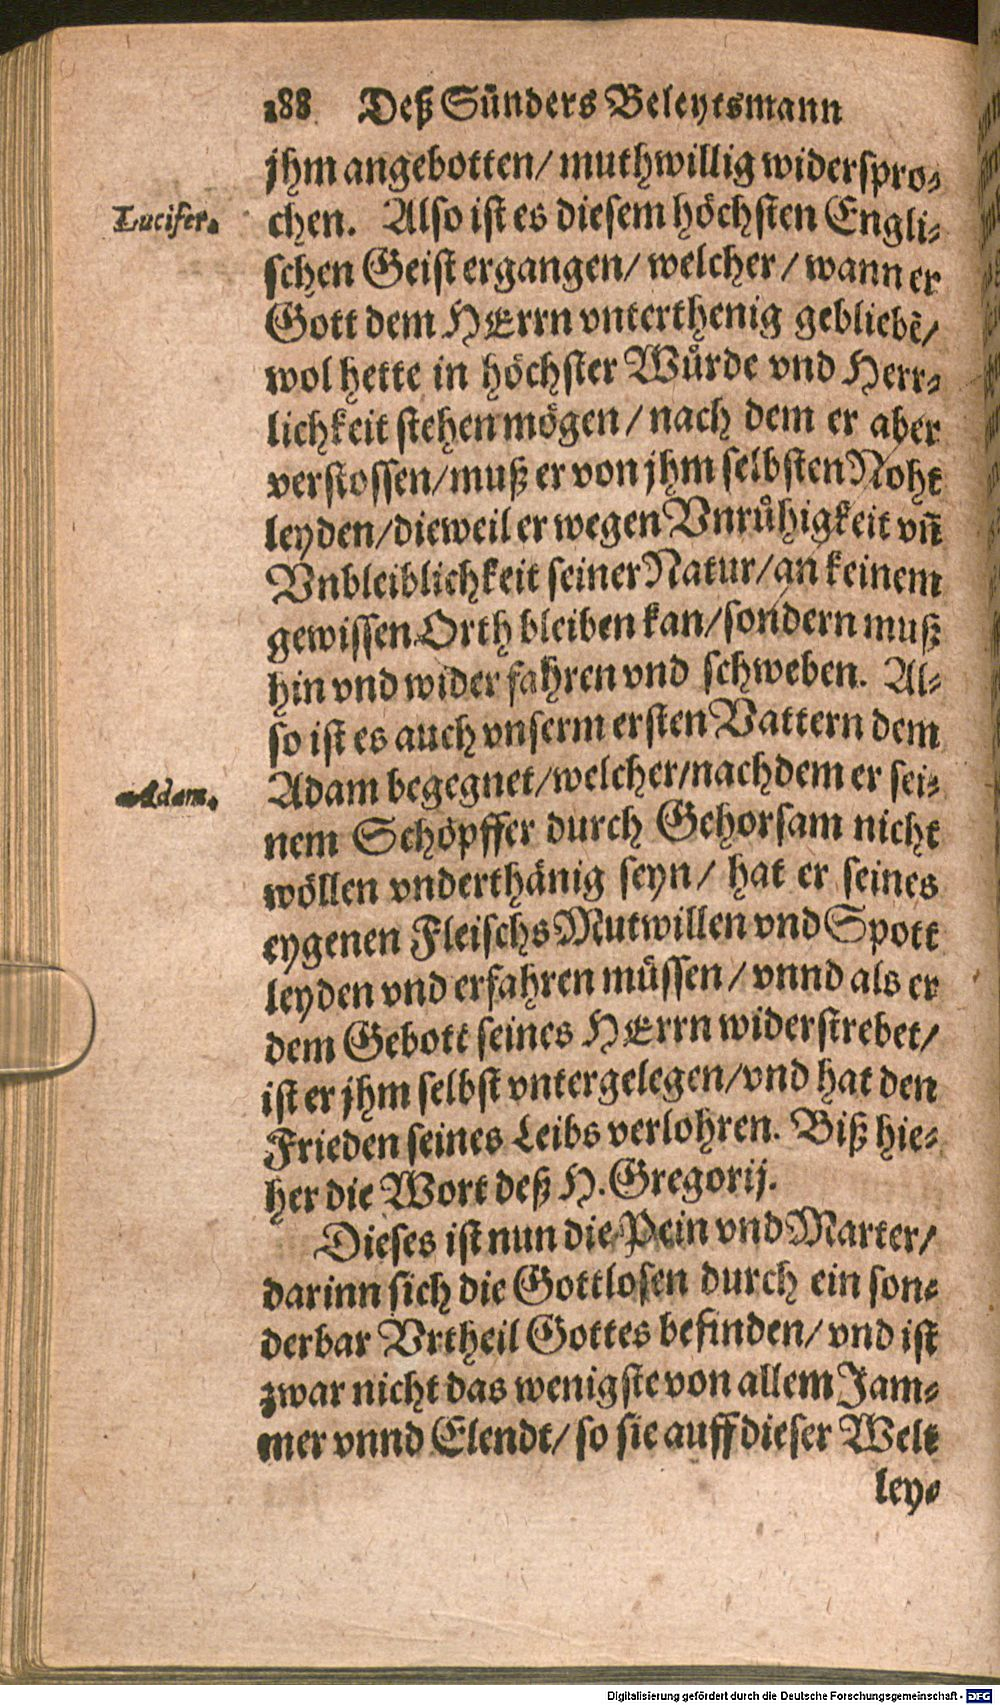 288 Deß Sünders Beleytsmann
jhm angebotten/ muthwillig widerspro-
Lucifer.
chen. Also ist es diesem höchsten Engli-
schen Geist ergangen/ welcher/ wann er
Gott dem HErrn vnterthenig gebliebẽ/
wol hette in höchster Wuͤrde vnd Herr-
lichkeit stehen mögen/ nach dem er aber
verstossen/ muß er von jhm selbsten Noht
leyden/ dieweil er wegen Vnruͤhigkeit vñ
Vnbleiblichkeit seiner Natur/ an keinem
gewissen Orth bleiben kan/ sondern muß
hin vnd wider fahren vnd schweben. Al-
so ist es auch vnserm ersten Vattern dem
Adam.
Adam begegnet/ welcher/ nachdem er sei-
nem Schöpffer durch Gehorsam nicht
wöllen vnderthänig seyn/ hat er seines
eygenen Fleischs Mutwillen vnd Spott
leyden vnd erfahren müssen/ vnnd als er
dem Gebott seines HErrn widerstrebet/
ist er jhm selbst vntergelegen/ vnd hat den
Frieden seines Leibs verlohren. Biß hie-
her die Wort deß H. Gregorij.
Dieses ist nun die Pein vnd Marter/
darinn sich die Gottlosen durch ein son-
derbar Vrtheil Gottes befinden/ vnd ist
zwar nicht das wenigste von allem Jam-
mer vnnd Elendt/ so sie auff dieser Welt
ley-
Digitalisierung gefördert durch die Deutsche Forschungsgemeinschaft - DFG